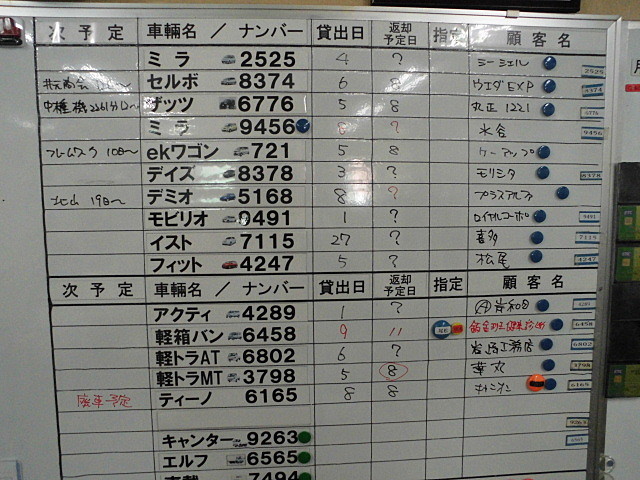 次予定 車輛名 / ナンバー 貸出日 返却予定日 指定 顧客名
ミラ 2525 4 ? シーシェル 2525
セルボ 8374 6 8 ウエダEXP 8374
ザッツ 6776 5 8 丸正 1221 6776
ミラ 9456 8 ? 水谷 9456
フレームワーク 10日～ ekワゴン 721 5 8 ケーアップ
デイズ 8378 3 ? モリシタ 8378
北山 19日～ デミオ 5168 8 ? プラスアルファ
モビリオ 9491 1 ? ロイヤルコーポ 9491
イスト 7115 27 ? 喜多 7115
フィット 4247 5 ? 松尾 4247
次予定 車輛名 / ナンバー 貸出日 返却予定日 指定 顧客名
アクティ 4289 1 ? 岸和田 4289
軽箱バン 6458 9 11 6458
軽トラAT 6802 6 ? 工務店 6802
軽トラMT 3798 5 8 華丸 3798
廃車予定 ティーノ 6165 8 8 6165
キャンター 9263 9263
エルフ 6565
7494